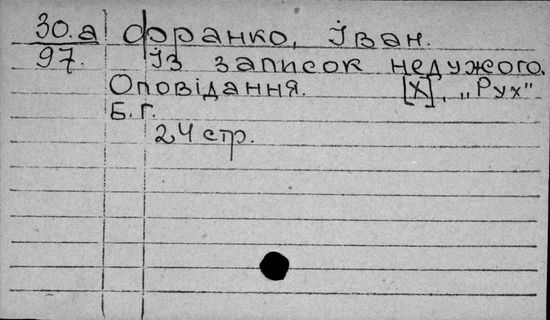 30.а Франко, Іван.
97. Із записок недужого.
Оповідання. [Х], „Рух"
Б. Г.
24 стр.